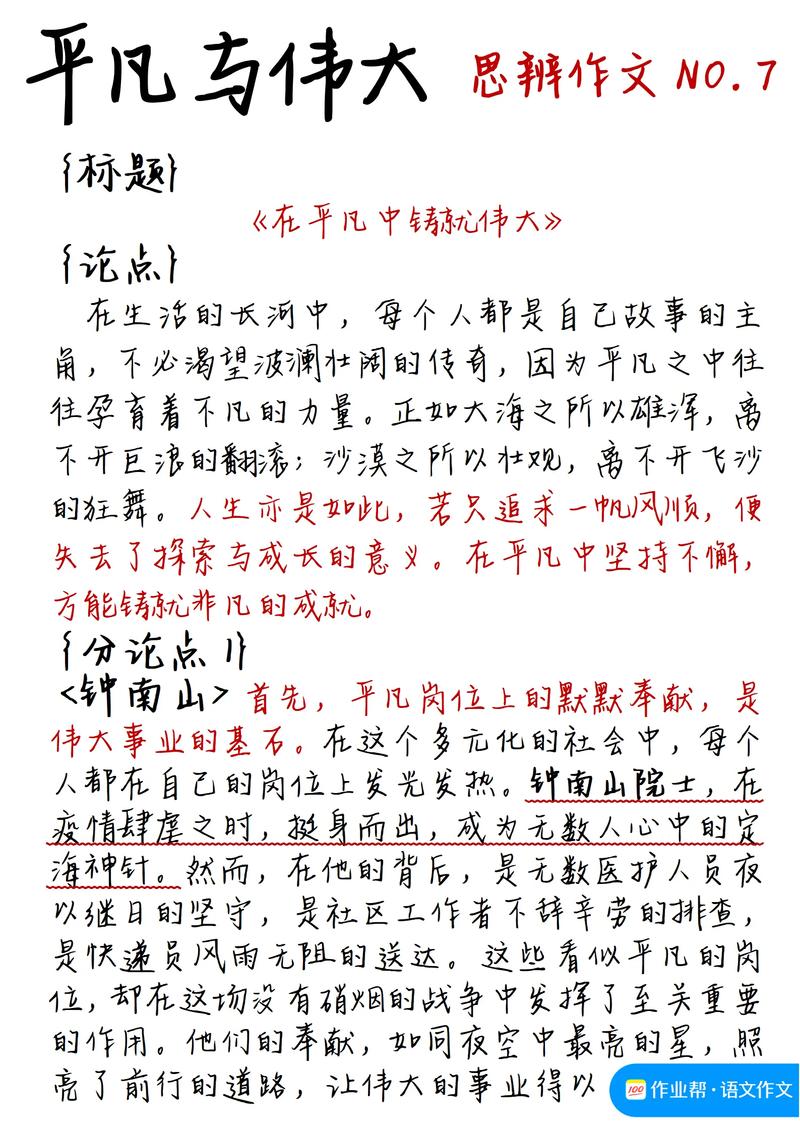 平凡与伟大 思辨作文 NO.7
{标题}
《在平凡中铸就伟大》
{论点}
在生活的长河中，每个人都是自己故事的主
角，不必渴望波澜壮阔的传奇，因为平凡之中往
往孕育着不凡的力量。正如大海之所以雄浑，离
不开巨浪的翻滚；沙漠之所以壮观，离不开飞沙
的狂舞。人生亦是如此，若只追求一帆风顺，便
失去了探索与成长的意义。在平凡中坚持不懈，
方能铸就非凡的成就。
{分论点1}
<钟南山>首先，平凡岗位上的默默奉献，是
伟大事业的基石。在这个多元化的社会中，每个
人都在自己的岗位上发光发热。钟南山院士，在
疫情肆虐之时，挺身而出，成为无数人心中的定
海神针。然而，在他的背后，是无数医护人员夜
以继日的坚守，是社区工作者不辞辛劳的排查，
是快递员风雨无阻的送达。这些看似平凡的岗
位，却在这场没有硝烟的战争中发挥了至关重要
的作用。他们的奉献，如同夜空中最亮的星，照
亮了前行的道路，让伟大的事业得以
100 作业帮·语文作文